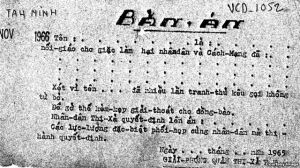 TAY MINH
VCD_1052
Bản án
NOV 1966 Tên : . . . . . . . . . . . là : . . . . . . . .
nối-giáo cho giặc làm hại nhândân và Cách-Mạng đã :
đã nhiều lần tranh-thủ kêu gọi không
từ bỏ.
Để có thể kềm-kẹp giải-thoát cho đồng-bào.
Nhân-dân Thị-Xã quyết-định lên án :
Các lực-lượng đặc-biệt phối-hợp cùng nhân-dân nà thi
hành quyết-định.
Ngày.... tháng . năm 1965
GIẢI-PHÓNG QUÂN THỊ-XÃ